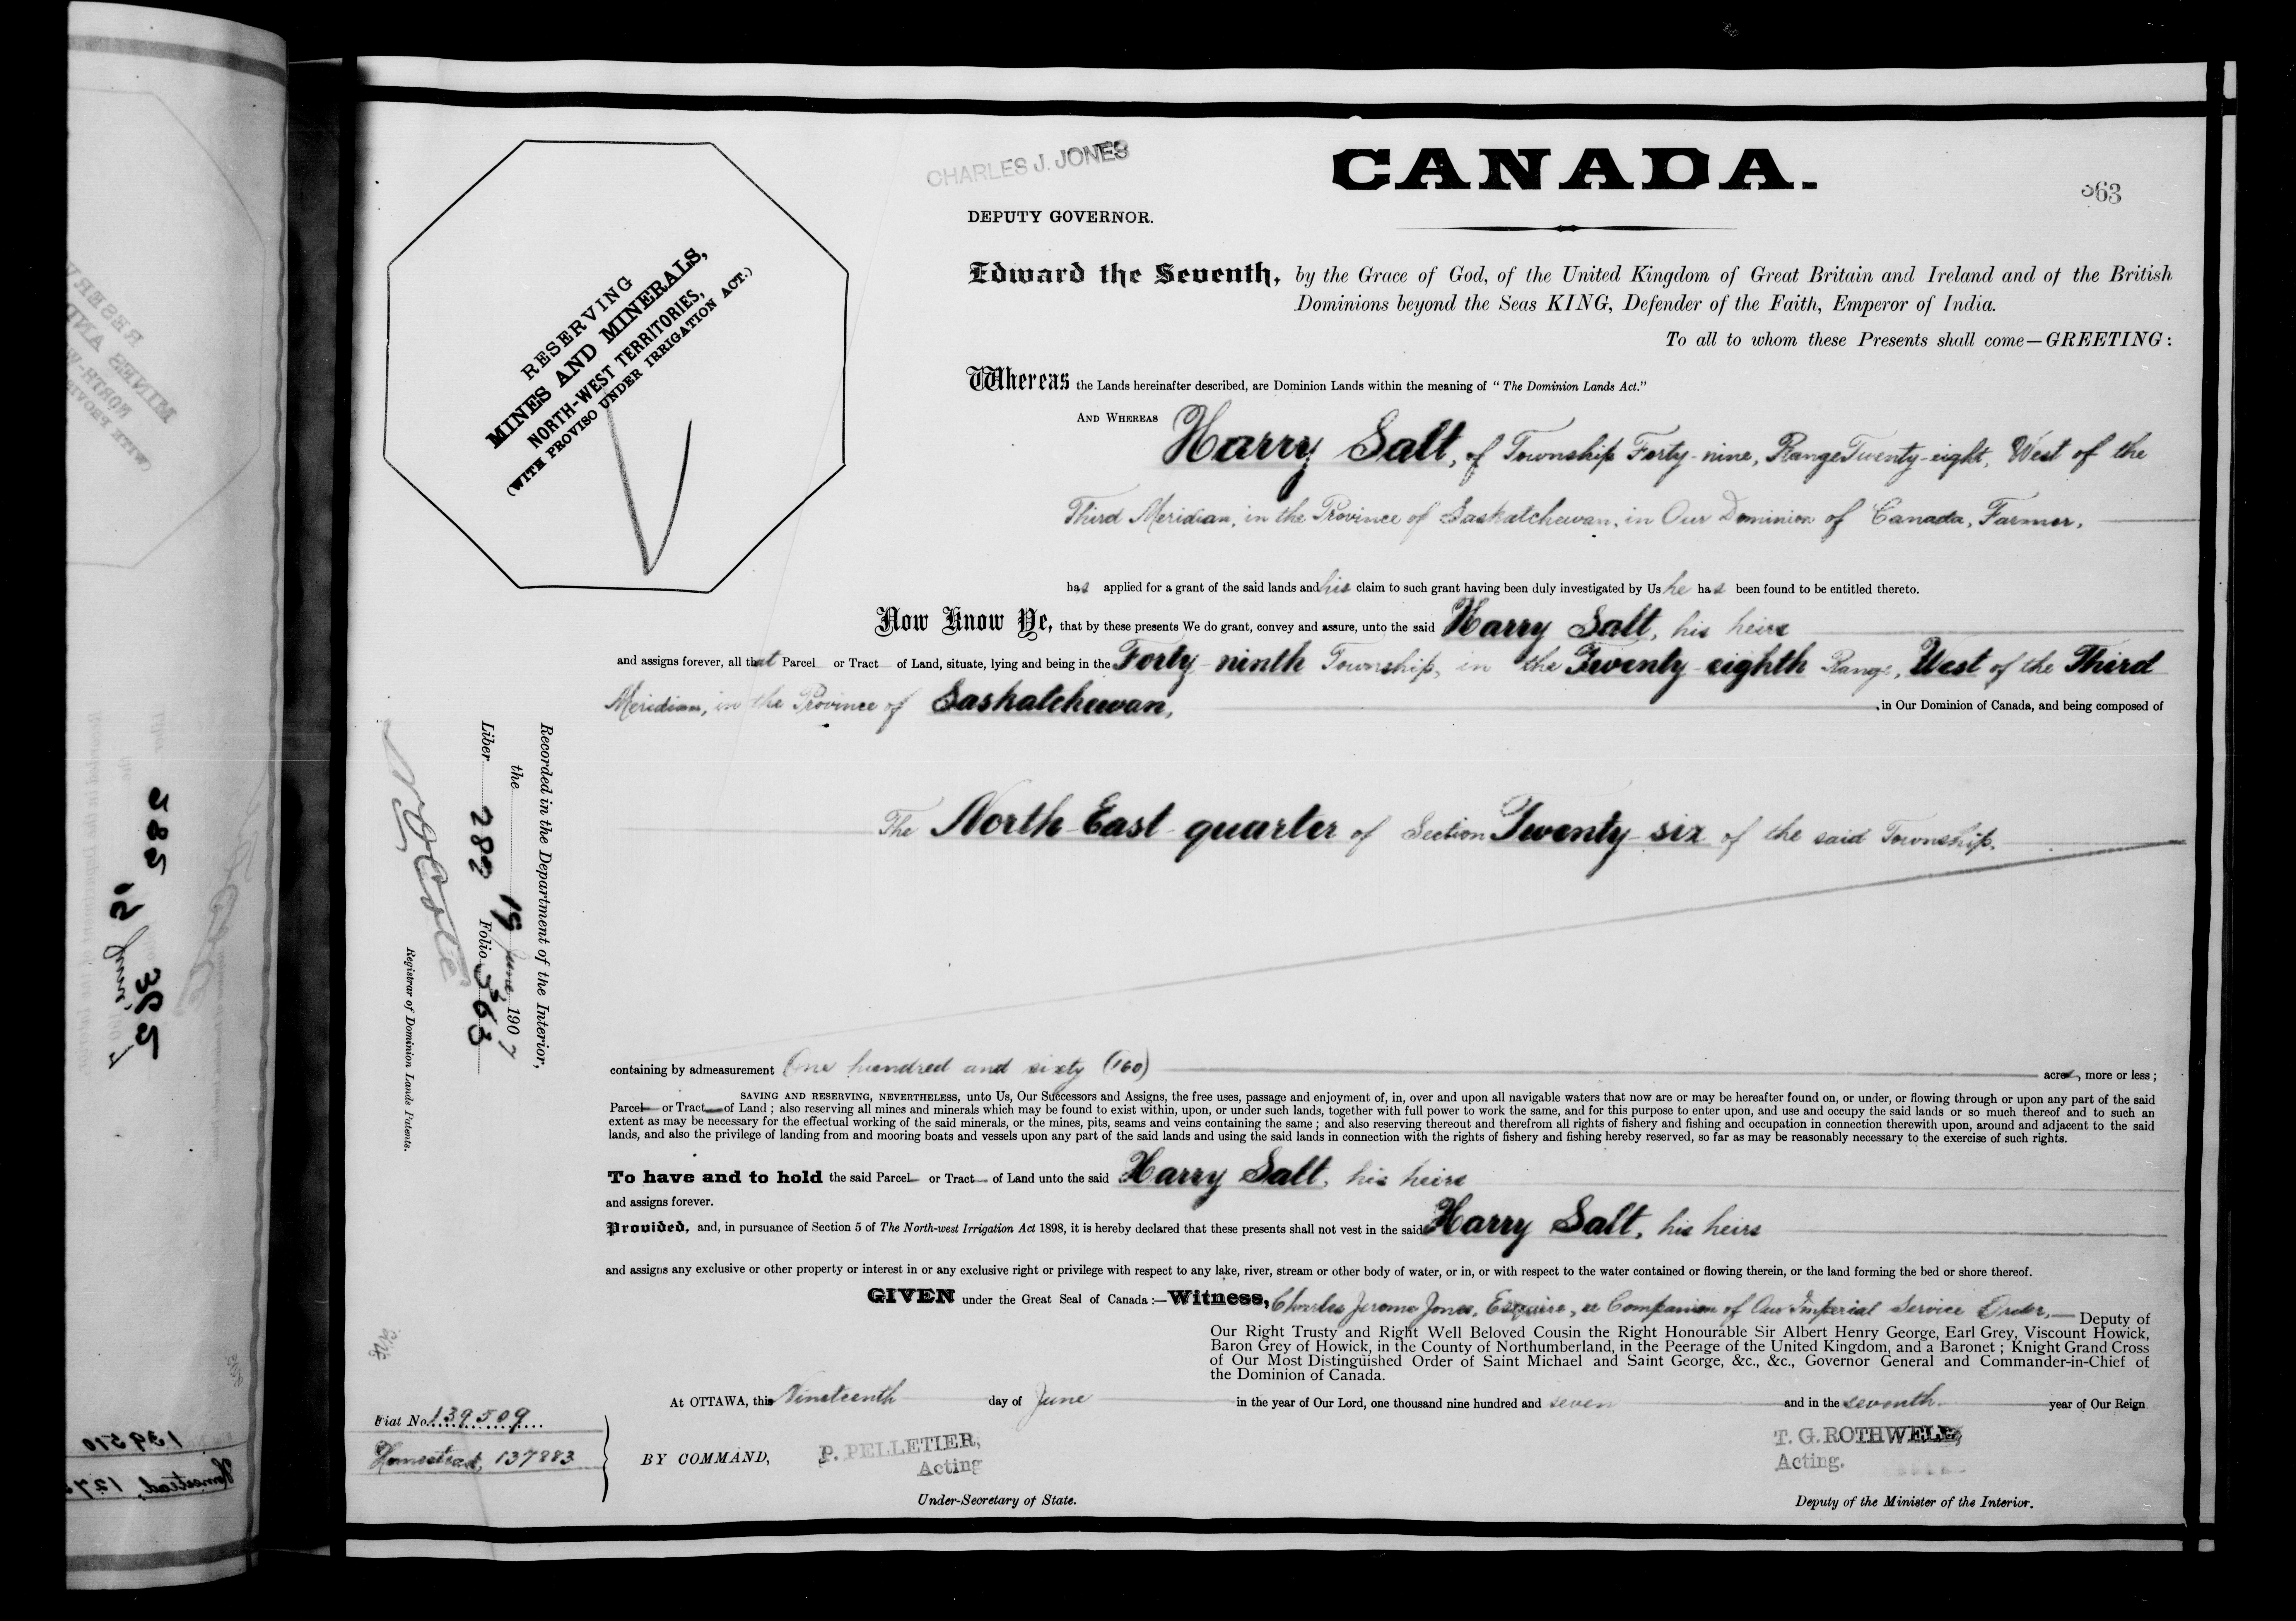 CHARLES J. JONES
CANADA.
363
DEPUTY GOVERNOR.
RESERVING
MINES AND MINERALS,
NORTH-WEST TERRITORIES,
(WITH PROVISO UNDER IRRIGATION ACT.)
Edward the Seventh, by the Grace of God, of the United Kingdom of Great Britain and Ireland and of the British
Dominions beyond the Seas KING, Defender of the Faith, Emperor of India.
To all to whom these Presents shall come—GREETING:
Whereas the Lands hereinafter described, are Dominion Lands within the meaning of "The Dominion Lands Act."
AND WHEREAS Harry Salt, of Township Forty-nine, Range Twenty-eight, West of the
Third Meridian, in the Province of Saskatchewan, in Our Dominion of Canada, Farmer,
has applied for a grant of the said lands and his claim to such grant having been duly investigated by Us he has been found to be entitled thereto.
Now Know Ye, that by these presents We do grant, convey and assure, unto the said Harry Salt, his heirs
and assigns forever, all that Parcel or Tract of Land, situate, lying and being in the Forty-ninth Township, in the Twenty-eighth Range, West of the Third
Meridian, in the Province of Saskatchewan, in Our Dominion of Canada, and being composed of
The North-East-quarter of Section Twenty-six of the said Township.
Recorded in the Department of the Interior,
the 19 June, 1907
Liber 282 Folio 363
Registrar of Dominion Lands Patents.
containing by admeasurement One hundred and sixty (160) acres, more or less;
SAVING AND RESERVING, NEVERTHELESS, unto Us, Our Successors and Assigns, the free uses, passage and enjoyment of, in, over and upon all navigable waters that now are or may be hereafter found on, or under, or flowing through or upon any part of the said
Parcel or Tract of Land; also reserving all mines and minerals which may be found to exist within, upon, or under such lands, together with full power to work the same, and for this purpose to enter upon, and use and occupy the said lands or so much thereof and to such an
extent as may be necessary for the effectual working of the said minerals, or the mines, pits, seams and veins containing the same; and also reserving thereout and therefrom all rights of fishery and fishing and occupation in connection therewith upon, around and adjacent to the said
lands, and also the privilege of landing from and mooring boats and vessels upon any part of the said lands and using the said lands in connection with the rights of fishery and fishing hereby reserved, so far as may be reasonably necessary to the exercise of such rights.
To have and to hold the said Parcel or Tract of Land unto the said Harry Salt, his heirs
and assigns forever.
Provided, and, in pursuance of Section 5 of The North-west Irrigation Act 1898, it is hereby declared that these presents shall not vest in the said Harry Salt, his heirs
and assigns any exclusive or other property or interest in or any exclusive right or privilege with respect to any lake, river, stream or other body of water, or in, or with respect to the water contained or flowing therein, or the land forming the bed or shore thereof.
GIVEN under the Great Seal of Canada:—Witness, Charles Jerome Jones, Esquire, a Companion of Our Imperial Service Order,— Deputy of
Our Right Trusty and Right Well Beloved Cousin the Right Honourable Sir Albert Henry George, Earl Grey, Viscount Howick,
Baron Grey of Howick, in the County of Northumberland, in the Peerage of the United Kingdom, and a Baronet; Knight Grand Cross
of Our Most Distinguished Order of Saint Michael and Saint George, &c., &c., Governor General and Commander-in-Chief of
the Dominion of Canada.
At OTTAWA, this Nineteenth day of June in the year of Our Lord, one thousand nine hundred and seven and in the seventh year of Our Reign
Fiat No. 139509
Homestead, 137883
BY COMMAND,
P. PELLETIER,
Acting
Under-Secretary of State.
T. G. ROTHWELL,
Acting.
Deputy of the Minister of the Interior.